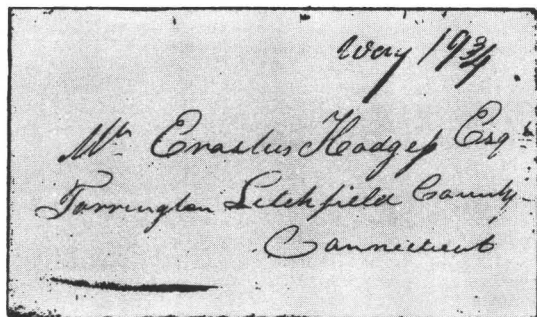 Way 19¾
Mr Erastus Hodges Esqr
Torrington Litchfield County
Connecticut